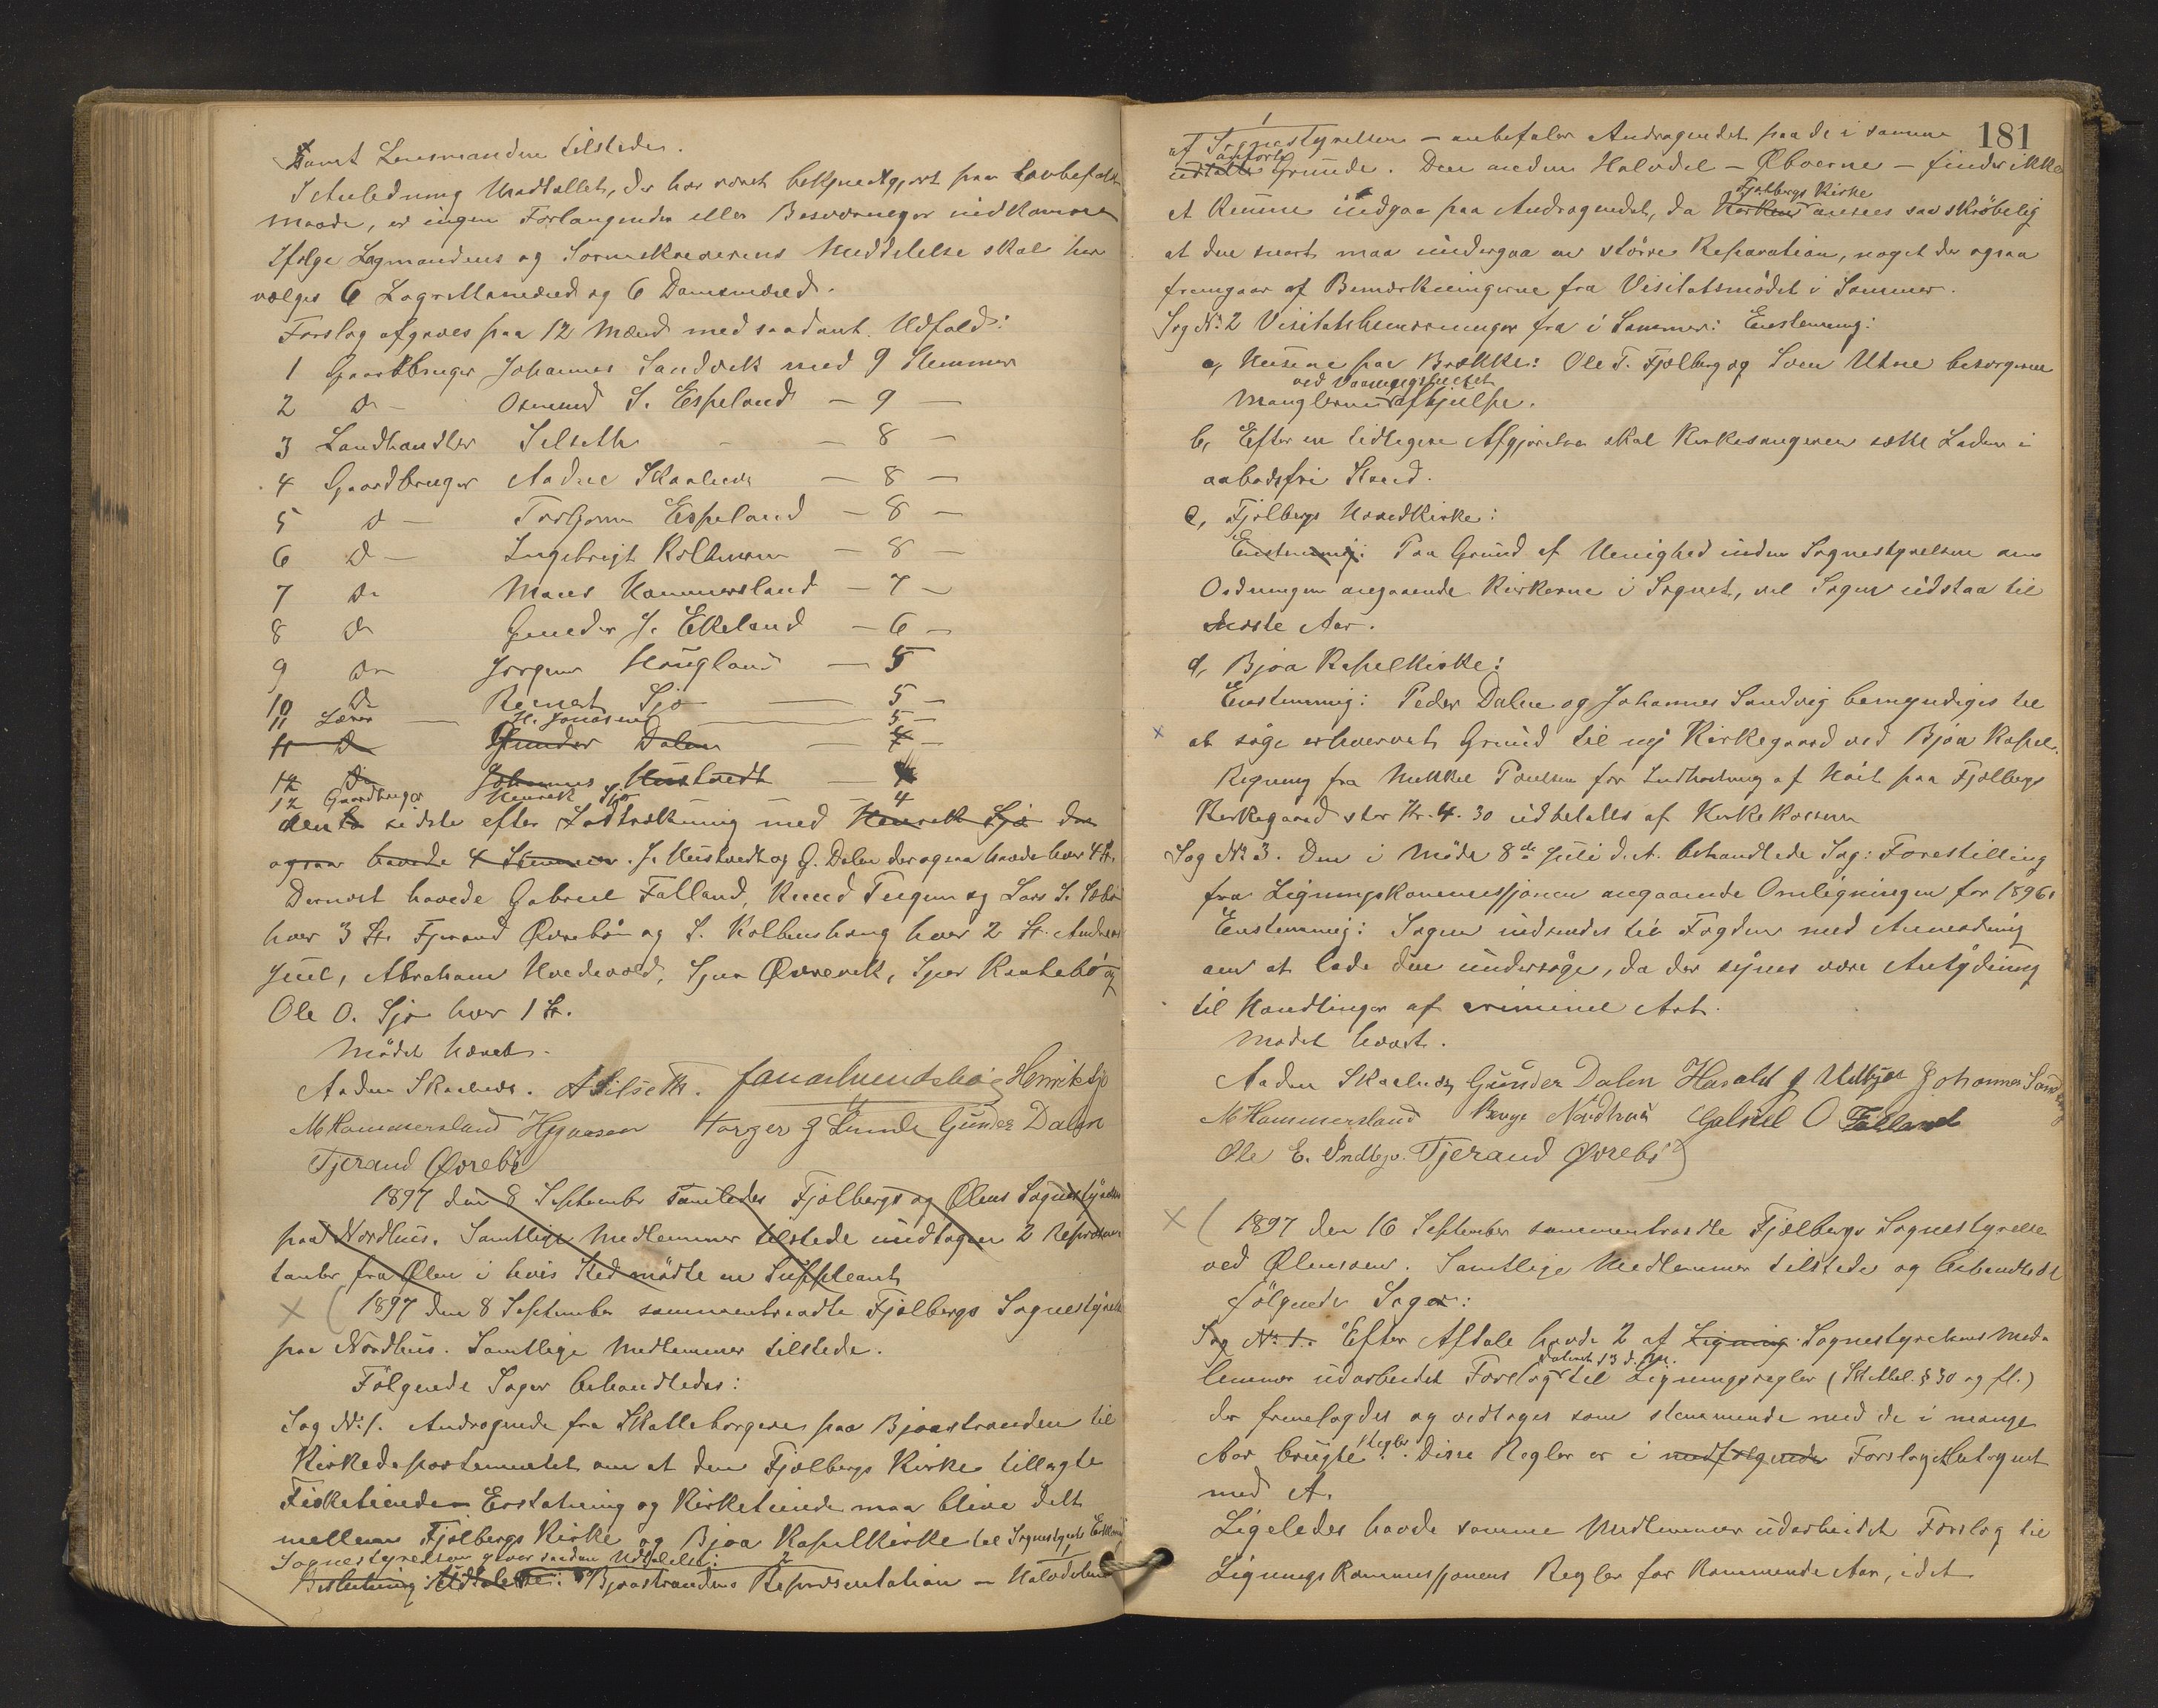 samt Lensmanden tilstede.
I Anledning Mandtallet, der har været bekjendtgjort paa lovbefalt
Maade, er ingen Forlangender eller Besværinger indkommen
Ifølge Lagmandens og Sorenskriverens Meddelelse skal her
vælges 6 Lagrettemænd og 6 Domsmænd.
Forslag afgaves paa 12 Mænd med saadant Udfald:
1 Gaardbruger Johannes Sandvik med 9 Stemmer
2 Do - Osmund S. Espeland - 9 -
3 Landhandler Silseth - - 8 -
4 Gaardbruger Aadne Skaalnes - 8 -
5 Do - Torbjørn Espeland - 8 -
6 Do - Ingebrigt - 8 -
7 Do Mons Hammersland - 7 -
8 Do Gunder J. Ekeland - 6 -
9 Do Jørgen Haugland - 5
10 Do Reinert Sjo - 5 -
11 Lærer - H. Jonassen - 5 -
11 Do Gunder Dalen - 4 -
12 Do Johannes Hustvedt - 4
12 Gaardbruger Henrik Sjo - 4
den sidste efter Lodtrækning med Henrik Sjo der
ogsaa havde 4 Stemmer. J. Hustvedt og G. Dalen der ogsaa havde hver 4 St.
Dernæst havde Gabriel Falland, Knud Teigen og Lars S. Sæbø
hver 3 St. Tjerand Øvrebø og S. Kolbenshaug hver 2 St. Andreas
Juul, Abraham Hvedevold, Sjur Øvrevik, Sjur og
Ole O. Sjo hver 1 St.
Mødet hævet.
Aadne Skaalnes. A Silseth. Henrik Sjo
M Hammersland H Jonassen Torger G Lunde Gunder Dalen
Tjerand Øvrebø
1897 den 8 September samledes Fjelbergs og Ølens Sognestyrelser
paa Nordhus. Samtlige Medlemmer tilstede undtagen 2 Repræsen
tanter fra Ølen i hvis Sted mødte en Suppleant
X ( 1897 den 8 September sammentraadte Fjelbergs Sognestyrelse
paa Nordhus. Samtlige Medlemmer tilstede.
Følgende Sager behandledes:
Sag No 1. Andragende fra Skatteborgere paa Bjoastranden til
Kirkedepartementet om at den Fjelbergs Kirke tillagte
Fisketiende Erstatning og Kirketiende maa blive delt
mellem Fjelbergs Kirke og Bjoa Kapelkirke til Sognestyrets Erklæring
Sognestyrelsen gaver saadan Udtalelse: 2
Beslutning Udtalelse: Bjoastrandens Repræsentation - Halvdelen
1
af Sognestyrelsen - anbefaler Andragendet paa de i samme 181
anførte
udtalte Grunde. Den anden Halvdel - Øboerne - finder ikke
Fjelbergs Kirke
at kunne indgaa paa Andragendet, da Kirken ansees saa skrøbelig
at den snart maa undergaa en større Reparation, noget der ogsaa
fremgaar af Bemærkningerne fra Visitatsmødet i Sommer.
Sag No 2 Visitatsbemærkninger fra i Sommer: Enstemmig:
a, Husene paa Brække: Ole T. Fjelberg og Sven Utne besørgerne
ved Vaaningshuset
Manglerne afhjulpe.
b, Efter en tidligere Afgjørelse skal Kirkesangeren sætte Laden i
aabodsfri Stand.
c, Fjelbergs Hovedkirke:
Enstemmig: Paa Grund af Uenighed inden Sognestyrelsen om
Ordningen angaaende Kirkerne i Sognet, vil Sagen udstaa til
næste Aar.
d, Bjoa Kapelkirke:
Enstemmig: Peder Dalen og Johannes Sandvig bemyndiges til
x at søge erhvervet Grund til ny Kirkegaard ved Bjoa Kapel.
Regning fra Mikkel Poulsen for Indhøstning af Høit paa Fjelbergs
Kirkegaard stor Kr. 4.30 udbetales af Kirkekassen
Sag No 3. Den i Møde 8de Juli d.A. behandlede Sag: Forestilling
fra Ligningskommissjonen angaaende Omligningen for 1896.
Enstemmig: Sagen indsendes til Fogden med Anmodning
om at lade den undersøge, da der synes være Antydning
til Handlinger af criminel Art.
Mødet hævet.
Aadne Skaalnes Gunder Dalen Harald J Utbjoe Johannes Sandvig
M Hammersland Børge Nordhuus Gabriel O Falland
Ole E. Indbjo. Tjerand Øvrebø
X ( 1897 den 16 September sammentraadte Fjelbergs Sognestyrelse
ved Ølensvaag. Samtlige Medlemmer tilstede og behandledes
følgende Sager:
Sag No 1. Efter Aftale havde 2 af Ligning Sognestyrelsens Med-
dateret 13 d. M.
lemmer udarbeidet Forslag til Ligningsregler (Skattel. § 30 og fl.)
der fremlagdes og vedtages som stemmende med de i mange
Aar brugte Regler. Disse Regler er i medfølgende Forslag betegnet
med A.
Ligeledes havde samme Medlemmer udarbeidet Forslag til
Ligningskommissjonens Regler for kommende Aar, idet